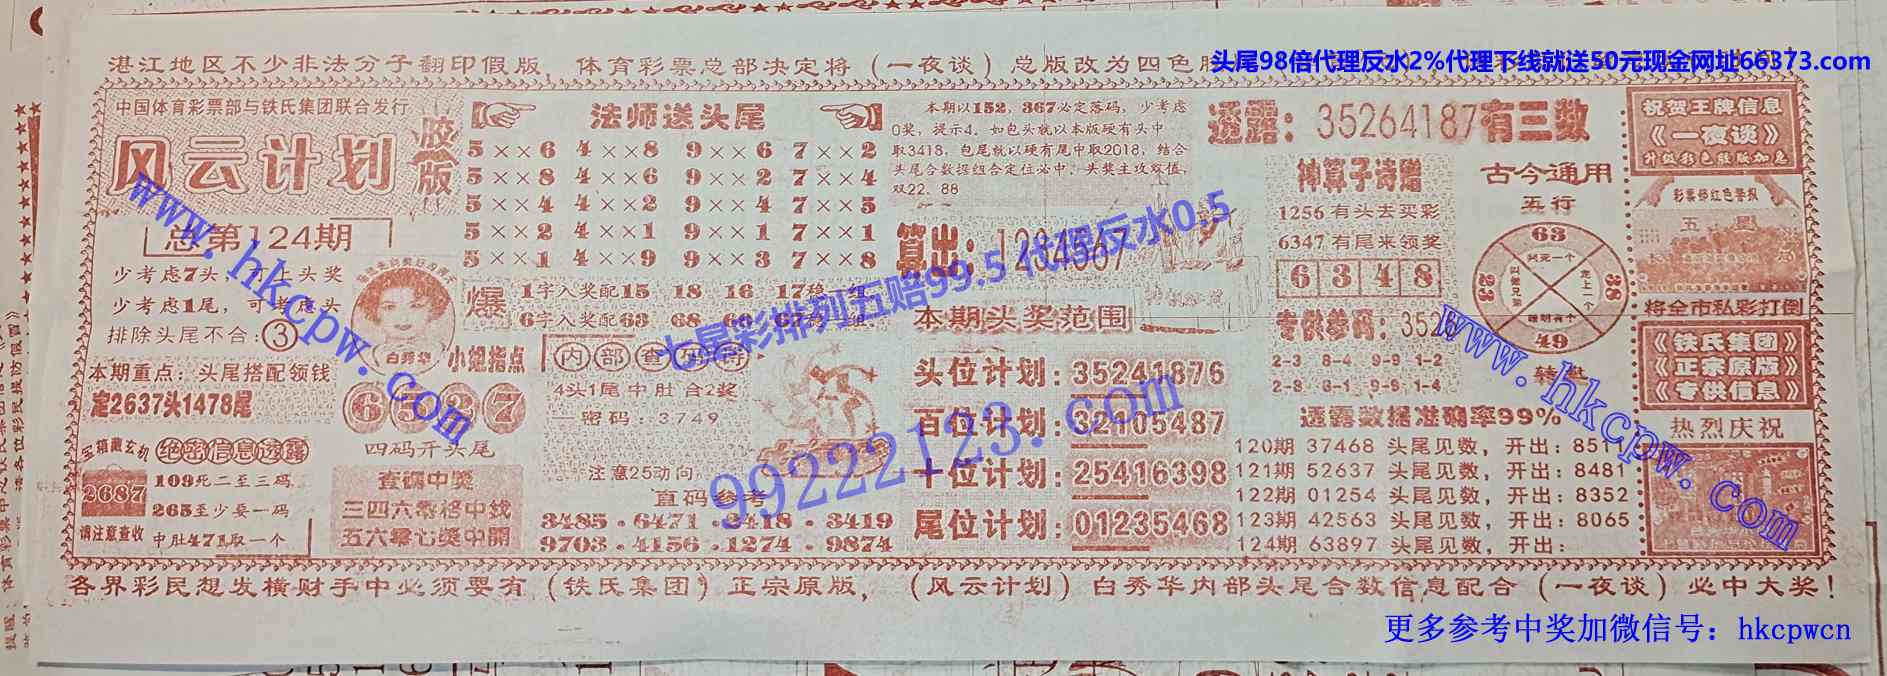 湛江地区不少非法分子翻印假版，体育彩票总部决定将（一夜谈）总版改为四色胶
头尾98倍代理反水2%代理下线就送50元现金网址66373.com
中国体育彩票部与铁氏集团联合发行
风云计划
胶版
总第124期
少考虑7头，可上头奖
少考虑1尾，可考虑头
排除头尾不合：③
白秀华
小姐指点
本期重点：头尾搭配领钱
定2637头1478尾
6527
四码开头尾
宝箱藏玄机
绝密信息透露
2687
108死二至三码
265至少要一码
请注意查收
中肚471取一个
查码中奖
三四六零格中线
五六零七奖中開
法师送头尾
5××6 4××8 9××6 7××2
5××8 4××6 9××2 7××4
5××4 4××2 9××4 7××5
5××2 4××1 9××1 7××1
5××1 4××9 9××3 7××8
爆
1字入奖配15 18 16 17稳一组
6字入奖配63 68 60 67
内部查码
4头1尾中肚合2奖
一密码：3749
注意25动向
直码参考
3485·6471·3418·3419
9703·4156·1274·9874
本期以152，367必定落码，少考虑
0奖，提示4．如包头就以本版硬有头中
取3418，包尾就以硬有尾中取2018，结合
头尾合数据组合定位必中．头奖主攻双值，
双22．88
算出：1234567
本期头奖范围
头位计划：35241876
百位计划：32105487
十位计划：25416398
尾位计划：01235468
透露：35264187有三数
神算子诗赠
1256有头去买彩
6347有尾来领奖
6348
专供参码：3526
2-3 8-4 9-9 1-2
2-8 6-1 9-9 1-4
古今通用
五行
63
23
38
49
转胜
透露数据准确率99%
120期 37468 头尾见数，开出：851
121期 52637 头尾见数，开出：8481
122期 01254 头尾见数，开出：8352
123期 42563 头尾见数，开出：8065
124期 63897 头尾见数，开出：
祝贺王牌信息
《一夜谈》
升级彩色胶版加急
彩票部红色警报
五星
将全市私彩打倒
《铁氏集团》
《正宗原版》
《专供信息》
热烈庆祝
各界彩民想发横财手中必须要有（铁氏集团）正宗原版，（风云计划）白秀华内部头尾合数信息配合（一夜谈）必中大奖！
www.hkcpw.com
七星彩排列五赔99.5 代理反水0.5
99222123.com
www.hkcpw.com
更多参考中奖加微信号：hkcpwcn